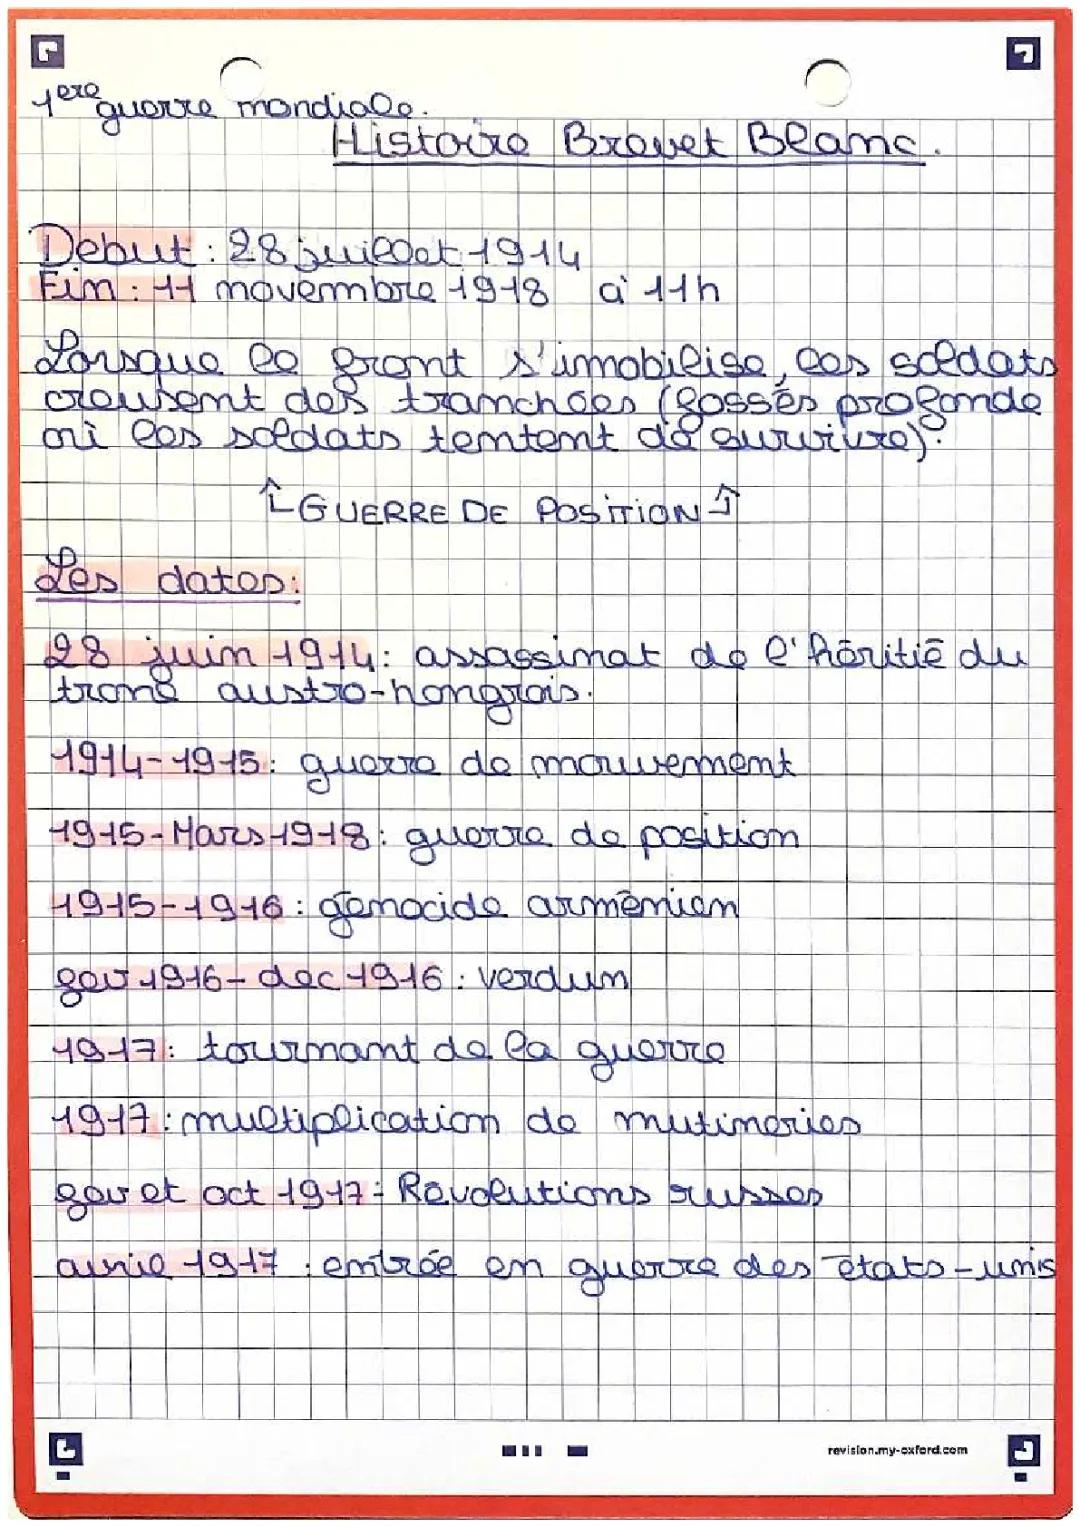 1ere guerre mondiale.
Histoire Brevet Blanc.
Debut : 28 juillet 1914
Fin : 11 novembre 1918 à 11h
Lorsque le front s'immobilise, les soldats
creusent des tranchées (fossés profonde
où les soldats tentent de survivre).
↑ GUERRE DE POSITION ↑
Les dates:
28 juin 1914: assassinat de l'héritié du
trone austro-hongrois.
1914-1915: guerre de mouvement
1915-Mars 1918: guerre de position
1915-1916: génocide arménien
fev 1916- dec 1916 : verdun
1917: tournant de la guerre
1917: multiplication de mutineries
fev et oct 1917: Revolutions russes
avril 1917 : entrée en guerre des états-unis
revision.my-oxford.com